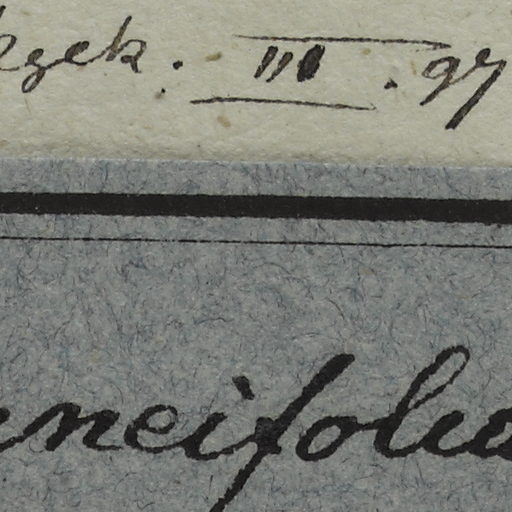 gek. III. 97
uneifolia